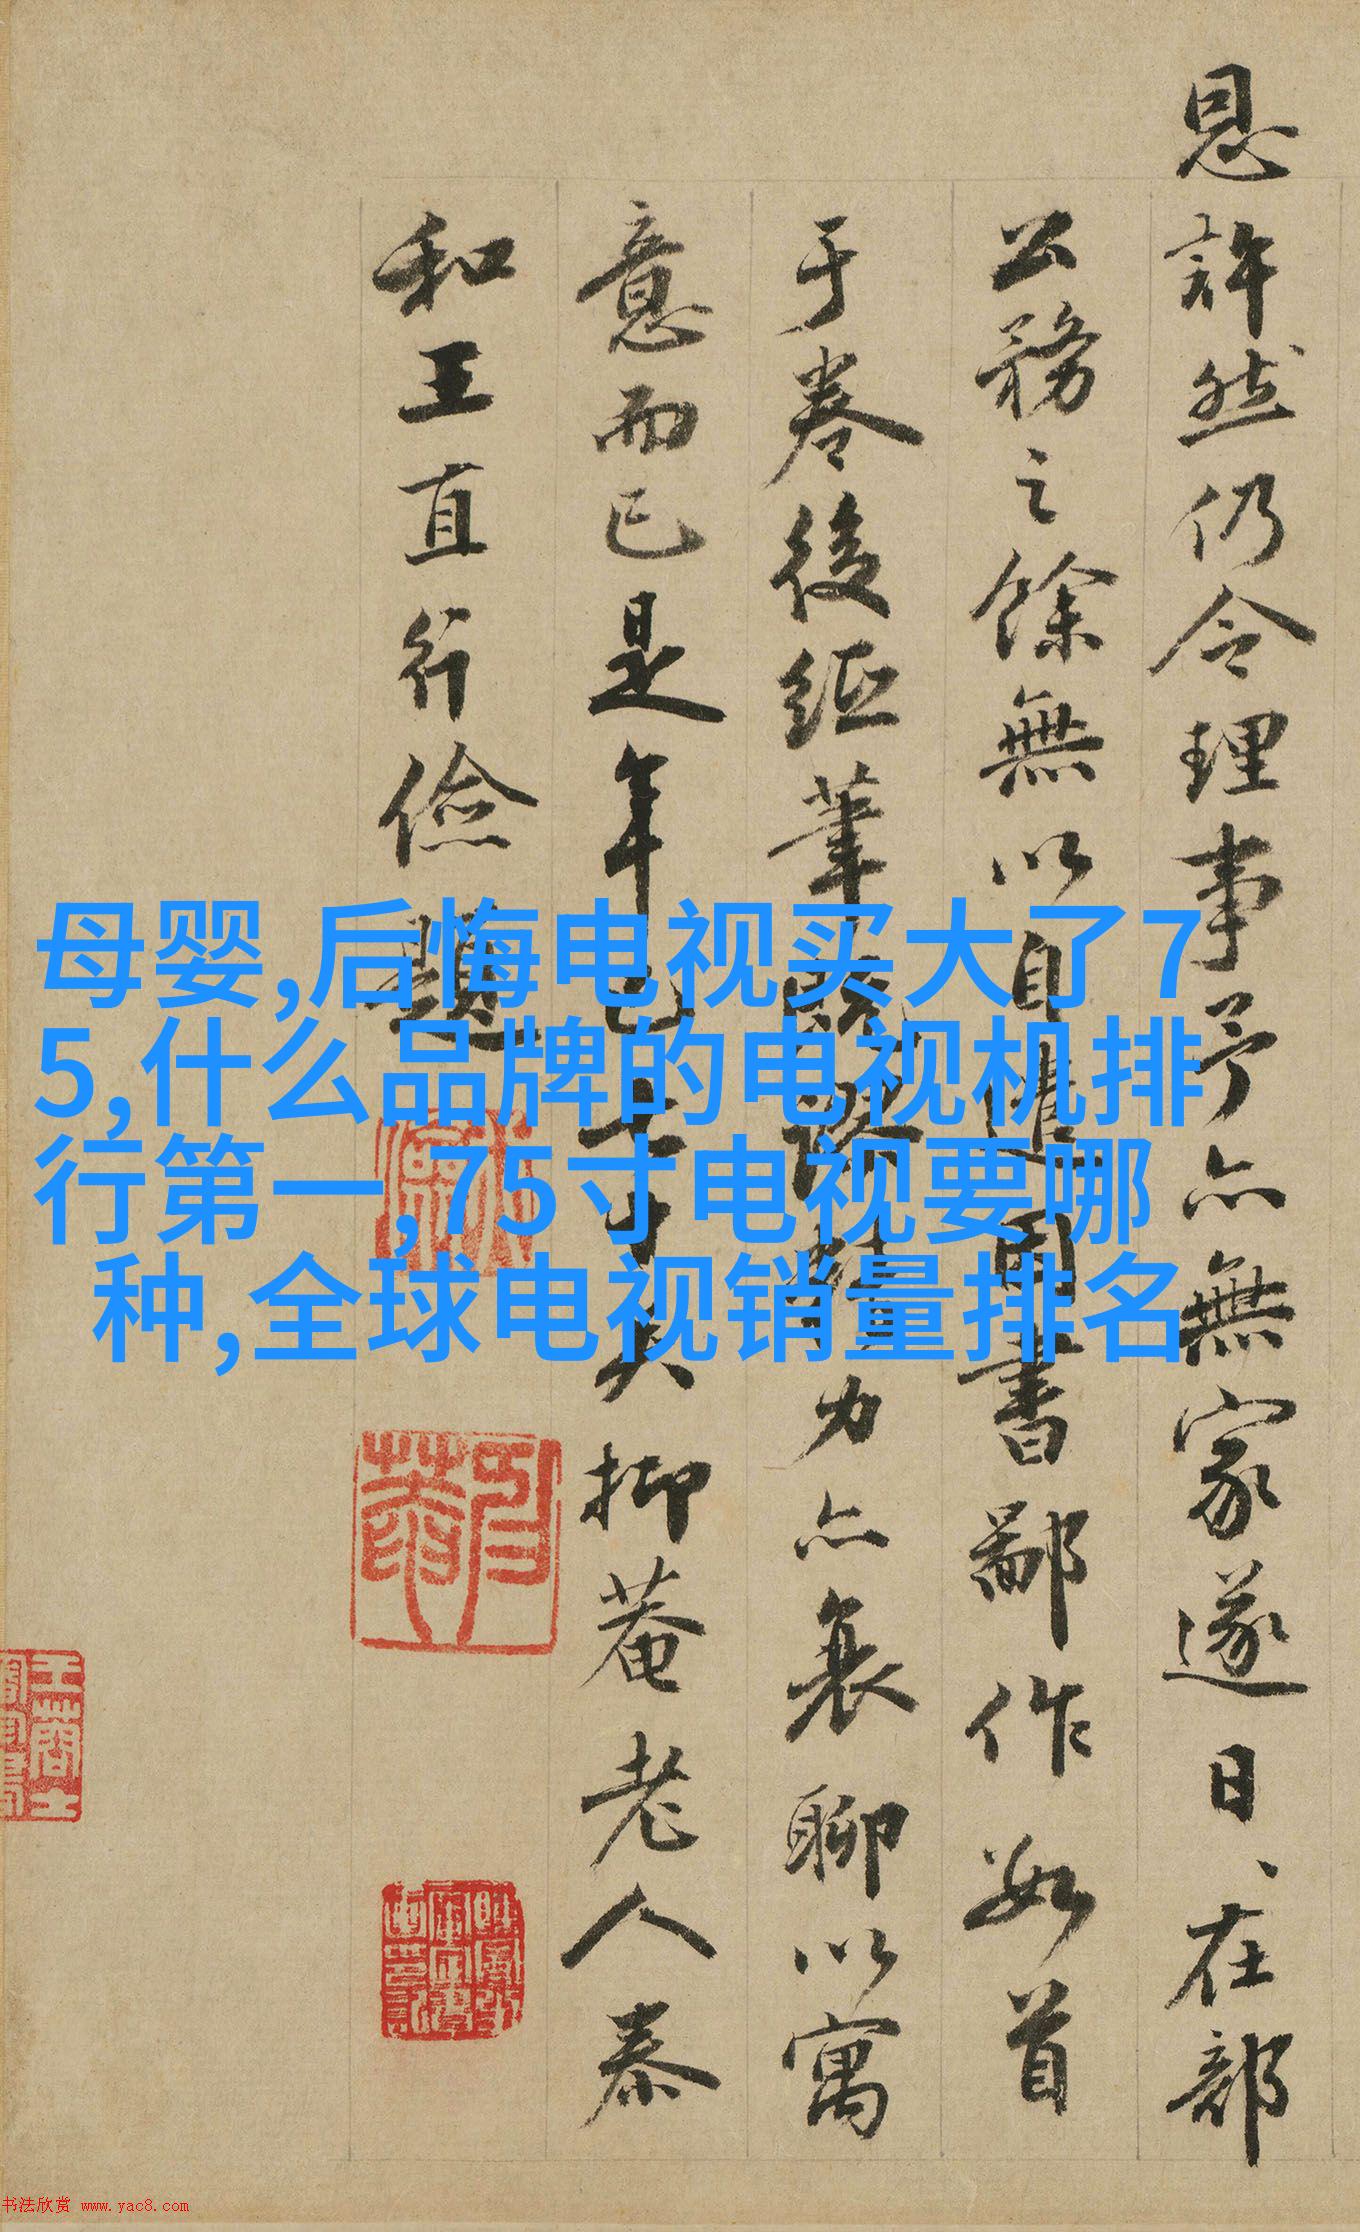 恩許然仍令理事予亦無家遂日、在部
公務之餘無以自進因書鄙作數首
于卷後紙筆力亦衰聊以寓
意而已是年已七十矣抑菴老人泰
和王直行儉題
母婴,后悔电视买大了7
5,什么品牌的电视机排
行第一,75寸电视要哪
种,全球电视销量排名
书法欣赏 www.yac8.com